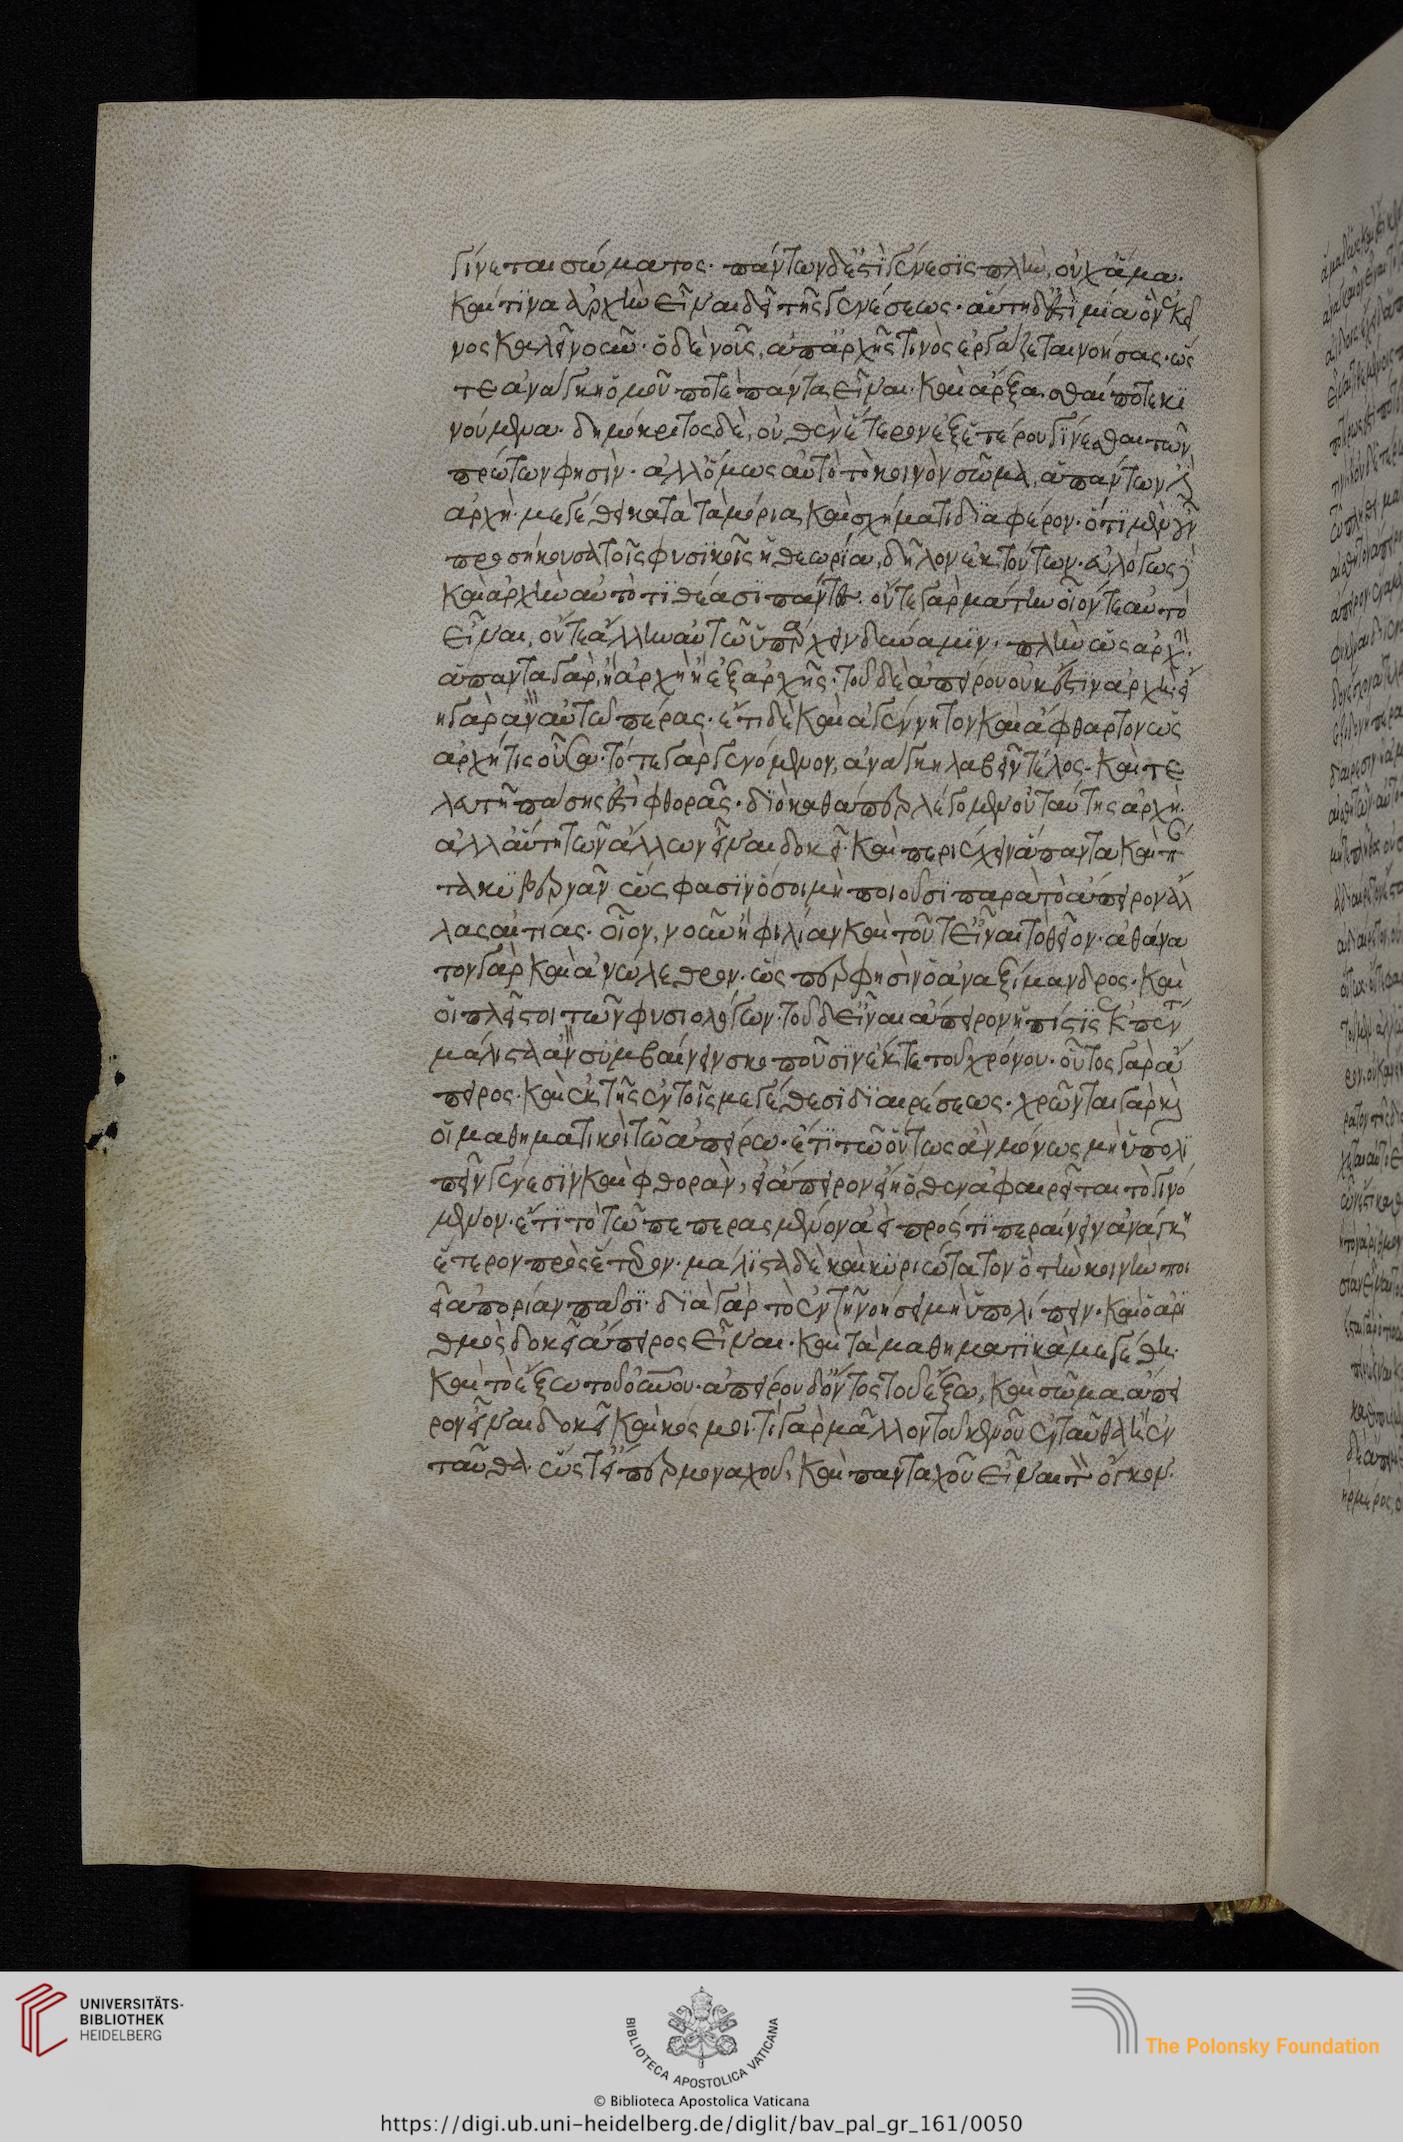 γίνεται σώματος. πάντων δέ ἐστὶ γένεσις πλὴν, οὐχ ἅμα.
καί τινα ἀρχὴν εἶναι δεῖ τῆς γενέσεως. αὕτη δ' ἐστὶ μία ὃν ἐκεῖ
νος καλεῖ νοῦν. ὁ δὲ νοῦς, ἀπ' ἀρχῆς τινὸς ἐργάζεται νοήσας. ὥς
τε ἀνάγκη ὁμοῦ ποτὲ πάντα εἶναι. καὶ ἄρξασθαί ποτε κι
νούμενα. δημόκριτος δὲ, οὐθὲν ἕτερον ἐξ ἑτέρου γίνεσθαι τῶν
πρώτων φησίν. ἀλλ' ὅμως αὐτὸ τὸ κοινὸν σῶμα, ἁπάντων ἐστὶν
ἀρχή. μεγέθει κατὰ τὰ μόρια καὶ σχήματι διαφέρον. ὅτι μὲν οὖν
προσήκουσα τοῖς φυσικοῖς ἡ θεωρία, δῆλον ἐκ τούτων. εὐλόγως δὲ
καὶ ἀρχὴν αὐτὸ τιθέασι πάντες. οὔτε γὰρ μάτην οἷόν τε αὐτὸ
εἶναι, οὔτε ἄλλην αὐτῷ ὑπάρχειν δύναμιν. πλὴν ὡς ἀρχήν.
ἅπαντα γὰρ, ἢ ἀρχὴ ἢ ἐξ ἀρχῆς. τοῦ δὲ ἀπείρου οὐκ ἔστιν ἀρχή. εἴ
η γὰρ ἂν αὐτοῦ πέρας. ἔτι δὲ καὶ ἀγέννητον καὶ ἄφθαρτον ὡς
ἀρχή τις οὖσα. τό τε γὰρ γενόμενον, ἀνάγκη λαβεῖν τέλος. καὶ τε
λευτὴ πάσης ἐστὶ φθορᾶς. διὸ καθάπερ λέγομεν οὐ ταύτης ἀρχή.
ἀλλ' αὕτη τῶν ἄλλων εἶναι δοκεῖ. καὶ περιέχειν ἅπαντα καὶ πάν
τα κυβερνᾶν ὥς φασιν ὅσοι μὴ ποιοῦσι παρὰ τὸ ἄπειρον ἄλ
λας αἰτίας. οἷον, νοῦν ἢ φιλίαν καὶ τοῦτ' εἶναι τὸ θεῖον. ἀθάνα
τον γὰρ καὶ ἀνώλεθρον. ὥς περ φησὶν ὁ ἀναξίμανδρος. καὶ
οἱ πλεῖστοι τῶν φυσιολόγων. τοῦ δ' εἶναι ἄπειρον ἡ πίστις ἐκ πέντε
μάλιστα ἂν συμβαίνειν σκοποῦσιν ἔκ τε τοῦ χρόνου. οὗτος γὰρ ἄ
πειρος. καὶ ἐκ τῆς ἐν τοῖς μεγέθεσι διαιρέσεως. χρῶνται γὰρ καὶ
οἱ μαθηματικοὶ τῷ ἀπείρῳ. ἔτι τῷ οὕτως ἂν μόνως μὴ ὑπολι
πεῖν γένεσιν καὶ φθορὰν, εἰ ἄπειρον εἴη ὅθεν ἀφαιρεῖται τὸ γινό
μενον. ἔτι τὸ τῷ πεπερασμένον ἀεὶ πρός τι περαίνειν ἀνάγκη
ἕτερον πρὸς ἕτερον. μάλιστα δὲ καὶ κυριώτατον ὃ τὴν κοινὴν ποι
εῖ ἀπορίαν πᾶσι. διὰ γὰρ τὸ ἐν τῇ νοήσει μὴ ὑπολίπειν. καὶ ὁ ἀρι
θμὸς δοκεῖ ἄπειρος εἶναι. καὶ τὰ μαθηματικὰ μεγέθη.
καὶ τὸ ἔξω τοῦ οὐρανοῦ. ἀπείρου δ' ὄντος τοῦ ἔξω, καὶ σῶμα ἄπει
ρον εἶναι δοκεῖ καὶ κόσμοι. τί γὰρ μᾶλλον τοῦ κενοῦ ἐνταῦθα ἢ ἐν
ταῦθα. ὥστ' εἴπερ μοναχοῦ, καὶ πανταχοῦ εἶναι τὸν ὄγκον.
UNIVERSITÄTS-
BIBLIOTHEK
HEIDELBERG
BIBLIOTECA APOSTOLICA VATICANA
The Polonsky Foundation
© Biblioteca Apostolica Vaticana
https://digi.ub.uni-heidelberg.de/diglit/bav_pal_gr_161/0050